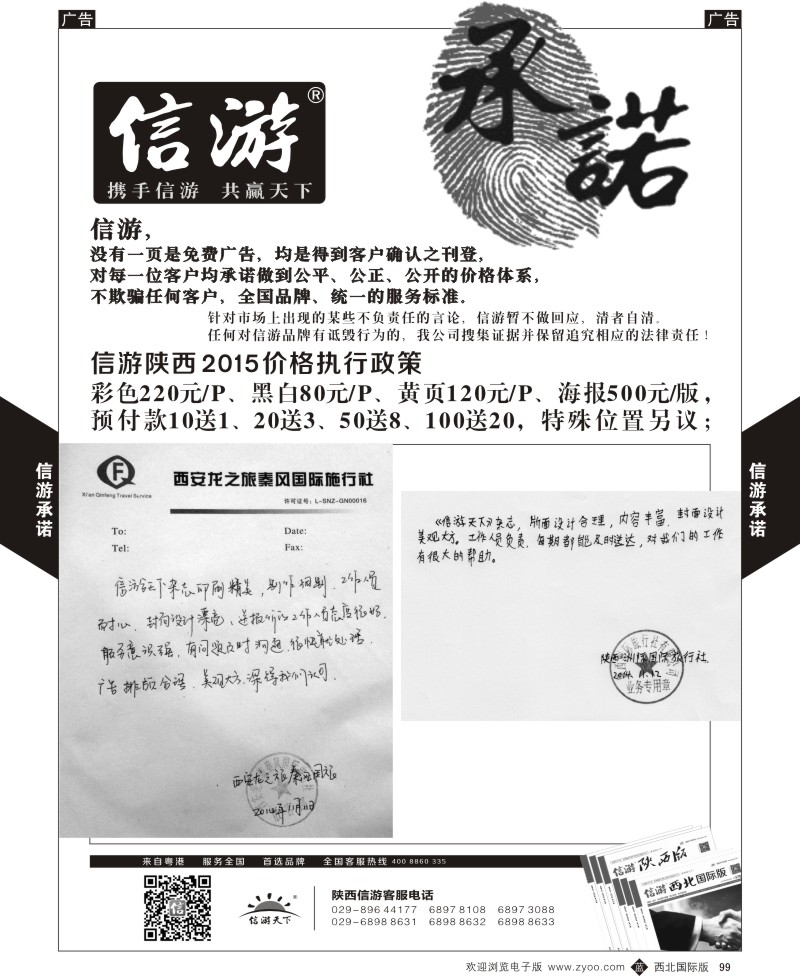 广告
广告
承諾
信游®
携手信游 共赢天下
信游，
没有一页是免费广告，均是得到客户确认之刊登，
对每一位客户均承诺做到公平、公正、公开的价格体系，
不欺骗任何客户，全国品牌、统一的服务标准。
针对市场上出现的某些不负责任的言论，信游暂不做回应，清者自清。
任何对信游品牌有诋毁行为的，我公司搜集证据并保留追究相应的法律责任！
信游陕西2015价格执行政策
彩色220元/P、黑白80元/P、黄页120元/P、海报500元/版，
预付款10送1、20送3、50送8、100送20，特殊位置另议；
信游承诺
信游承诺
Xi'an Qinfeng Travel Service
西安龙之旅秦风国际旅行社
许可证号：L-SNZ-GN00016
To: Date:
Tel: Fax:
信游天下杂志印刷精美，制作细则，工作人员
耐心，封面设计漂亮、送报价的工作人员态度很好，
服务意识强，有问题及时沟通，很快就处理
广告排版合理、美观大方，深得我们认可。
西安龙之旅秦风国旅
2014年11月11日
《信游天下》杂志，版面设计合理，内容丰富，封面设计
美观大方。工作人员负责，每期都能及时送达，对我们的工作
有很大的帮助。
国际旅行社有限
国际旅行社.
2014.11.12
业务专用章
来自粤港 服务全国 首选品牌 全国客服热线 400 8860 335
信游
信游天下
陕西信游客服电话
029-896 44177 6897 8108 6897 3088
029-6898 8631 6898 8632 6898 8633
信游 陕西版
信游 西北国际版
欢迎浏览电子版 www.zyoo.com 蓝 西北国际版 99